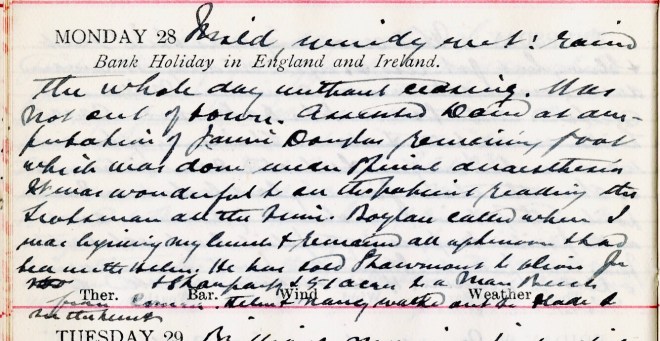 MONDAY 28 Mild, windy wet: rained
Bank Holiday in England and Ireland.
the whole day without ceasing. Was
not out of town. Assisted David at am-
putation of James Douglas remaining foot
which was done under spinal anaesthesia
It was wonderful to see the patient reading the
Scotsman all the time. Boylan called when I
was beginning my lunch & remained all afternoon & had
tea with Helen. He has sold
& 51 acres to a Man
Ther. Bar. Wind Weather
Helen & Nancy walked out to
TUESDAY 29